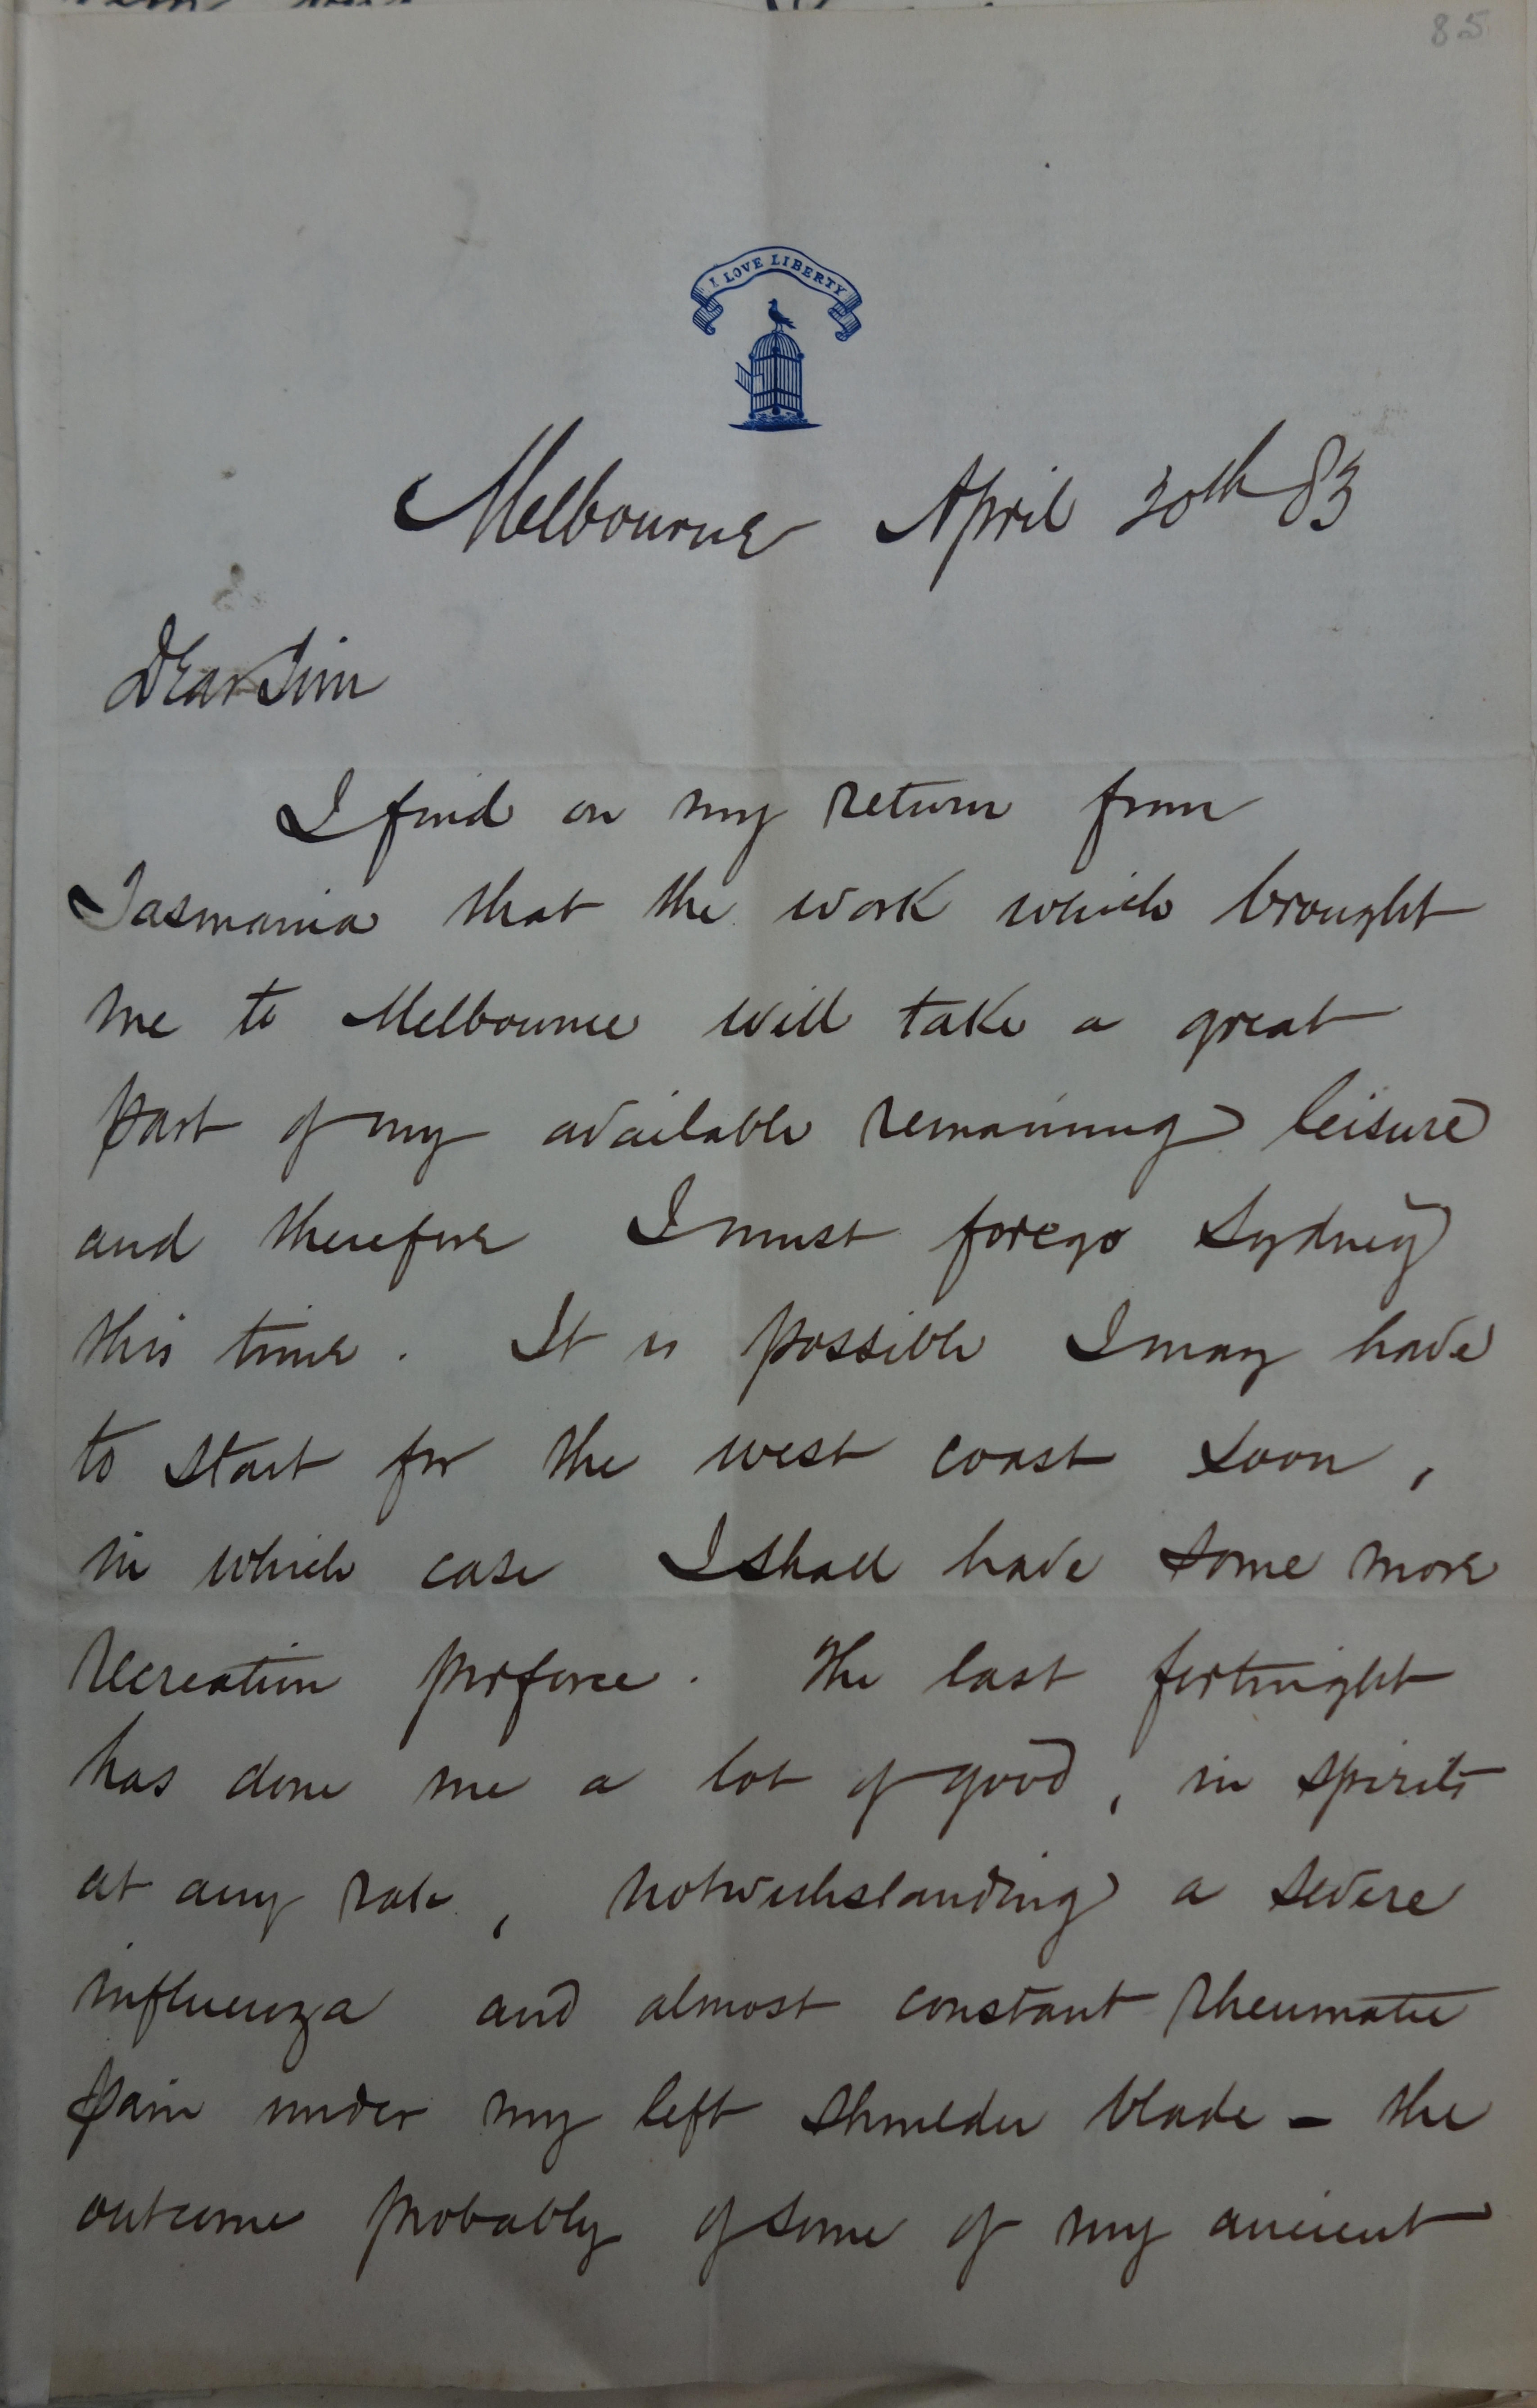 85
I LOVE LIBERTY
Melbourne April 30th 83
Dear Jim
I find on my return from
Tasmania that the work which brought
me to Melbourne will take a great
part of my available remaining leisure
and therefore I must forego Sydney
this time. It is possible I may have
to start for the west coast soon,
in which case I shall have some more
recreation perforce. The last fortnight
has done me a lot of good, in spirits
at any rate, notwithstanding a severe
influenza and almost constant rheumatic
pain under my left shoulder blade – the
outcome probably of some of my ancient